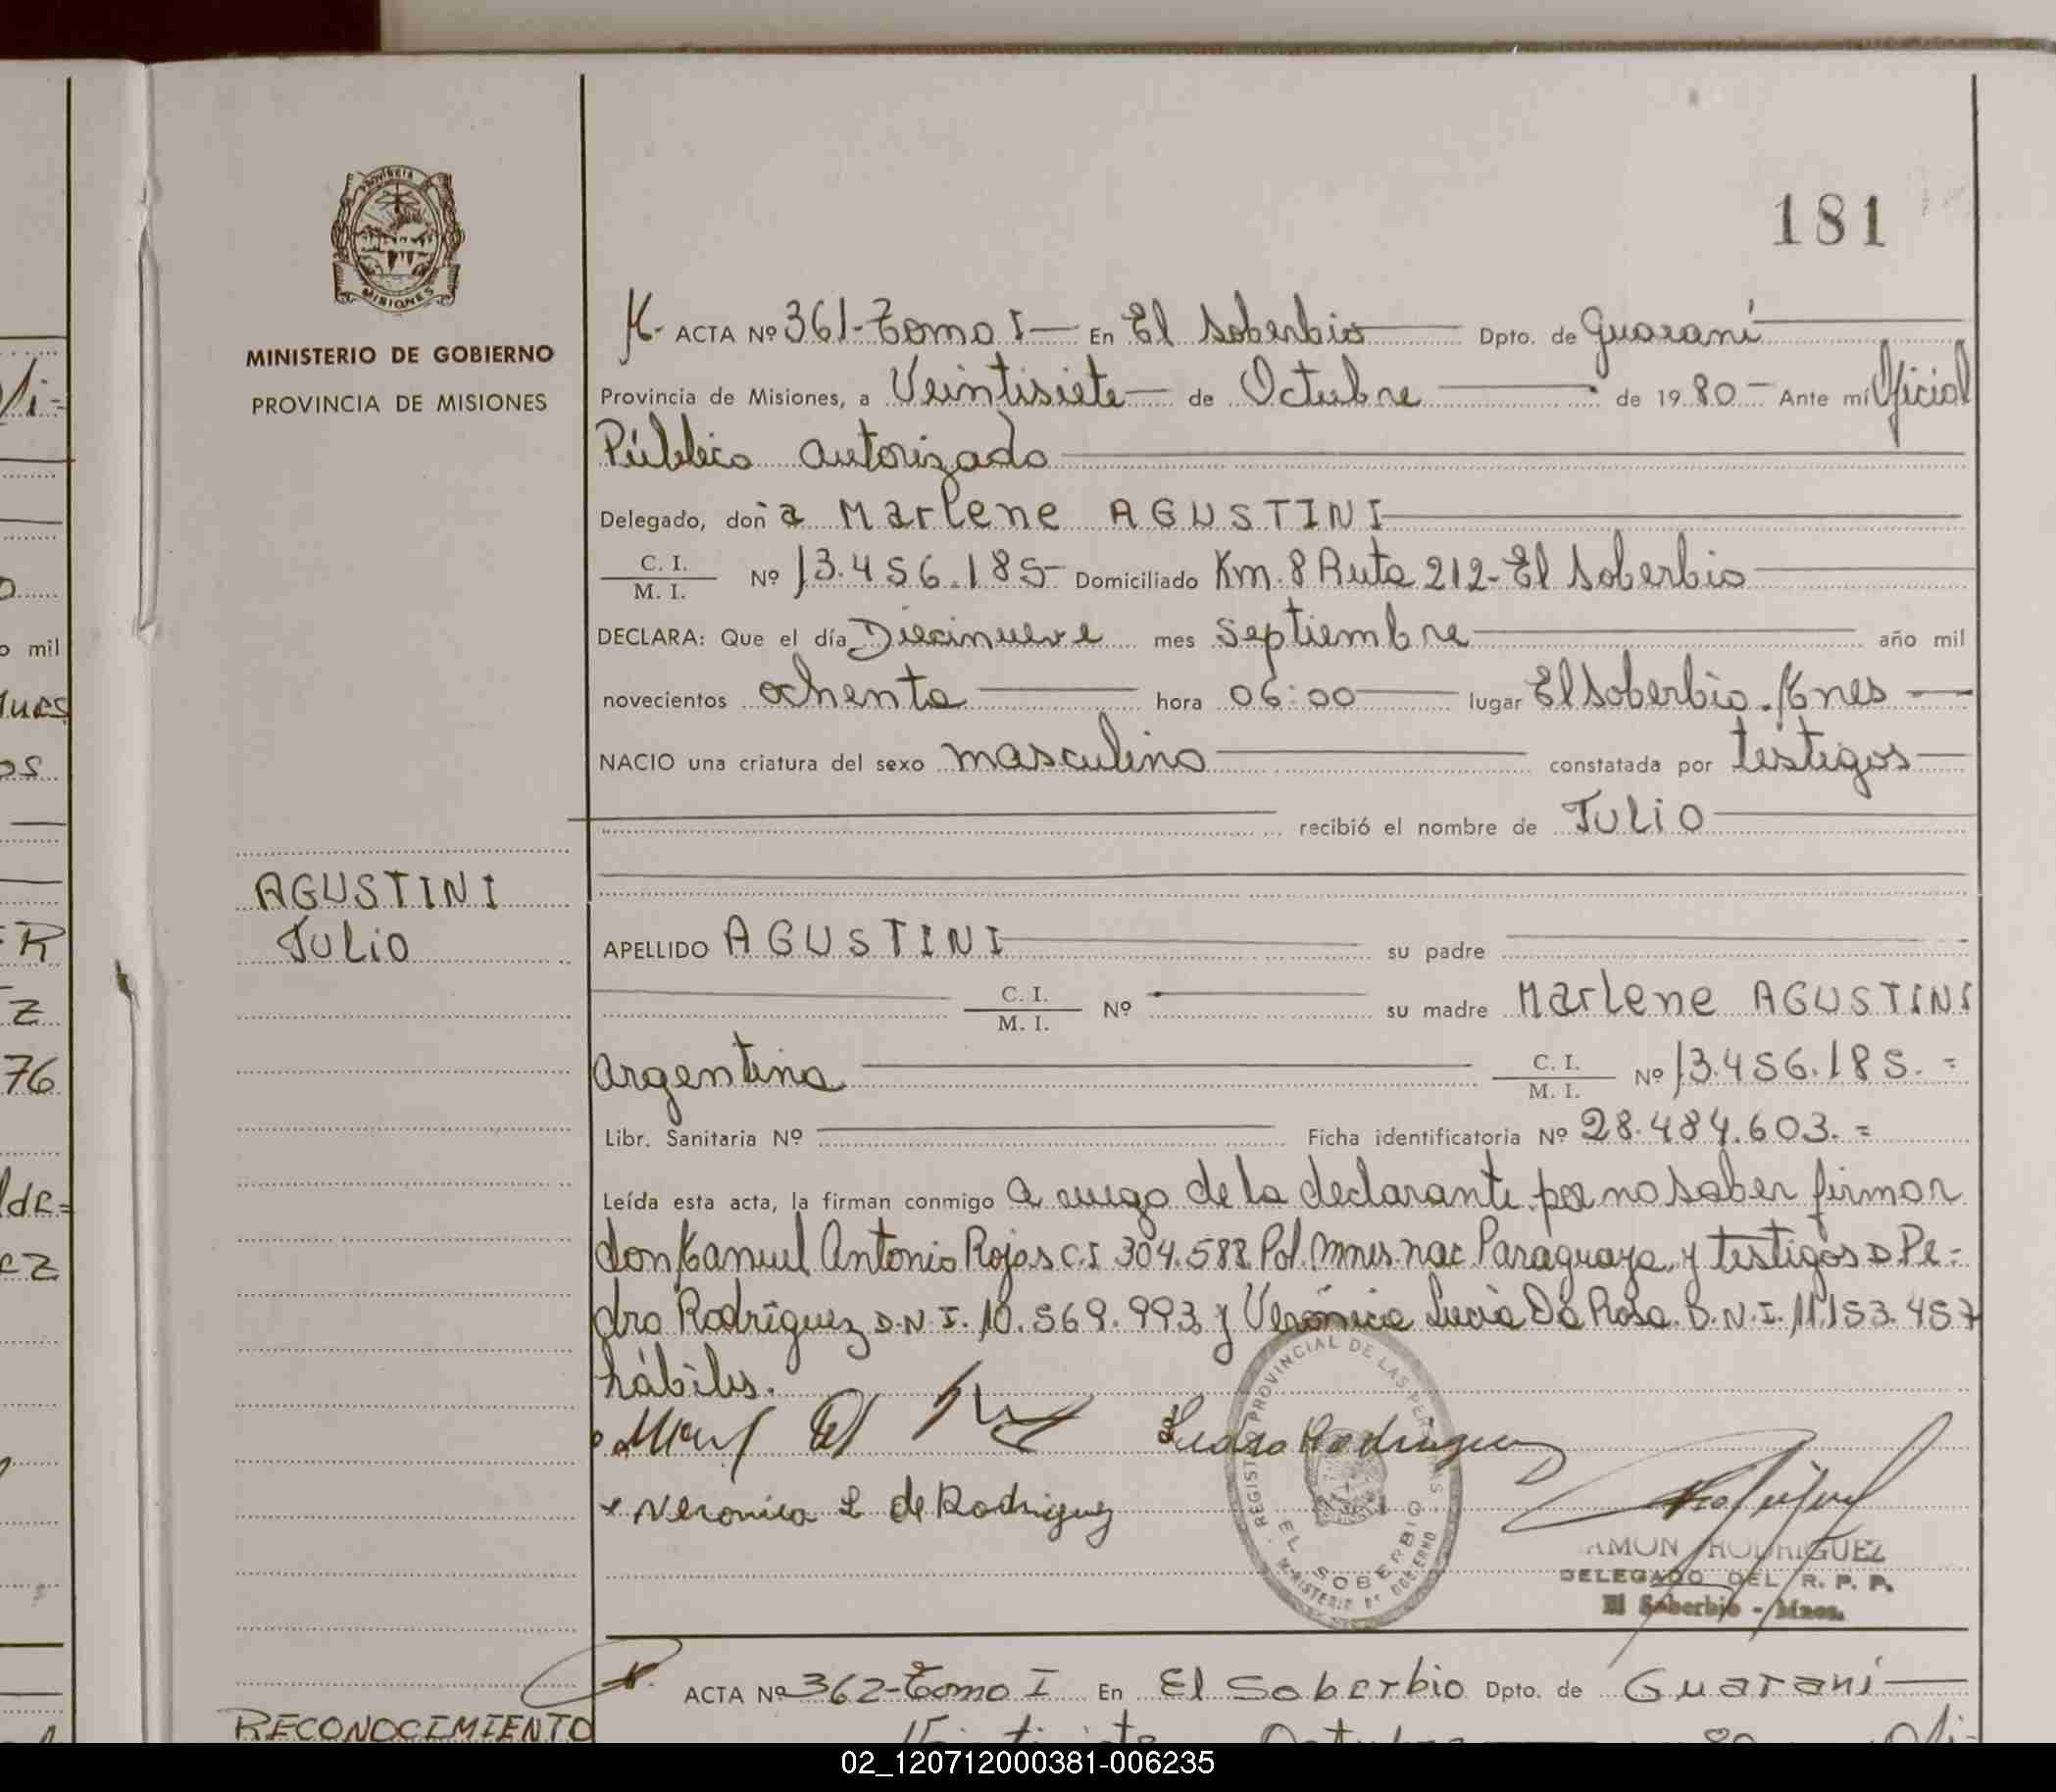 181
PROVINCIA
MISIONES
MINISTERIO DE GOBIERNO
PROVINCIA DE MISIONES
ACTA Nº 361-Tomo I- En El Soberbio Dpto. de Guaraní
Provincia de Misiones, a Veintisiete de Octubre de 1980- Ante mí Oficial
Público autorizado
Delegado, doña Marlene AGUSTINI
C. I.
M. I. Nº 13.456.185- Domiciliado Km. 8 Ruta 212- El Soberbio
DECLARA: Que el día Diecinueve mes Septiembre año mil
novecientos ochenta hora 06:00 lugar El Soberbio. Mnes
NACIO una criatura del sexo masculino constatada por testigos
recibió el nombre de JULIO
AGUSTINI
JULIO
APELLIDO AGUSTINI su padre
C. I.
M. I. Nº su madre Marlene AGUSTINI
argentina C. I.
M. I. Nº 13.456.185. =
Libr. Sanitaria Nº Ficha identificatoria Nº 28.484.603. =
Leída esta acta, la firman conmigo a ruego de la declarante por no saber firmar
don Manuel Antonio Rojas C.I 304.588 Pol. Mnes. nac. Paraguaya, y testigos D. Pe-
dro Rodríguez D.N.I. 10.569.993, y Verónica Lucía Da Rosa. D.N.I. 11.153.457
hábiles.
Rodriguez
Veronica L de Rodriguez
REGISTRO PROVINCIAL DE LAS PERSONAS
EL SOBERBIO
MINISTERIO DE GOBIERNO
AMON RODRIGUEZ
DELEGADO DEL R. P. P.
El Soberbio - Mnes.
ACTA Nº 362-Tomo I En El Soberbio Dpto. de Guaraní
RECONOCIMIENTO
02_120712000381-006235